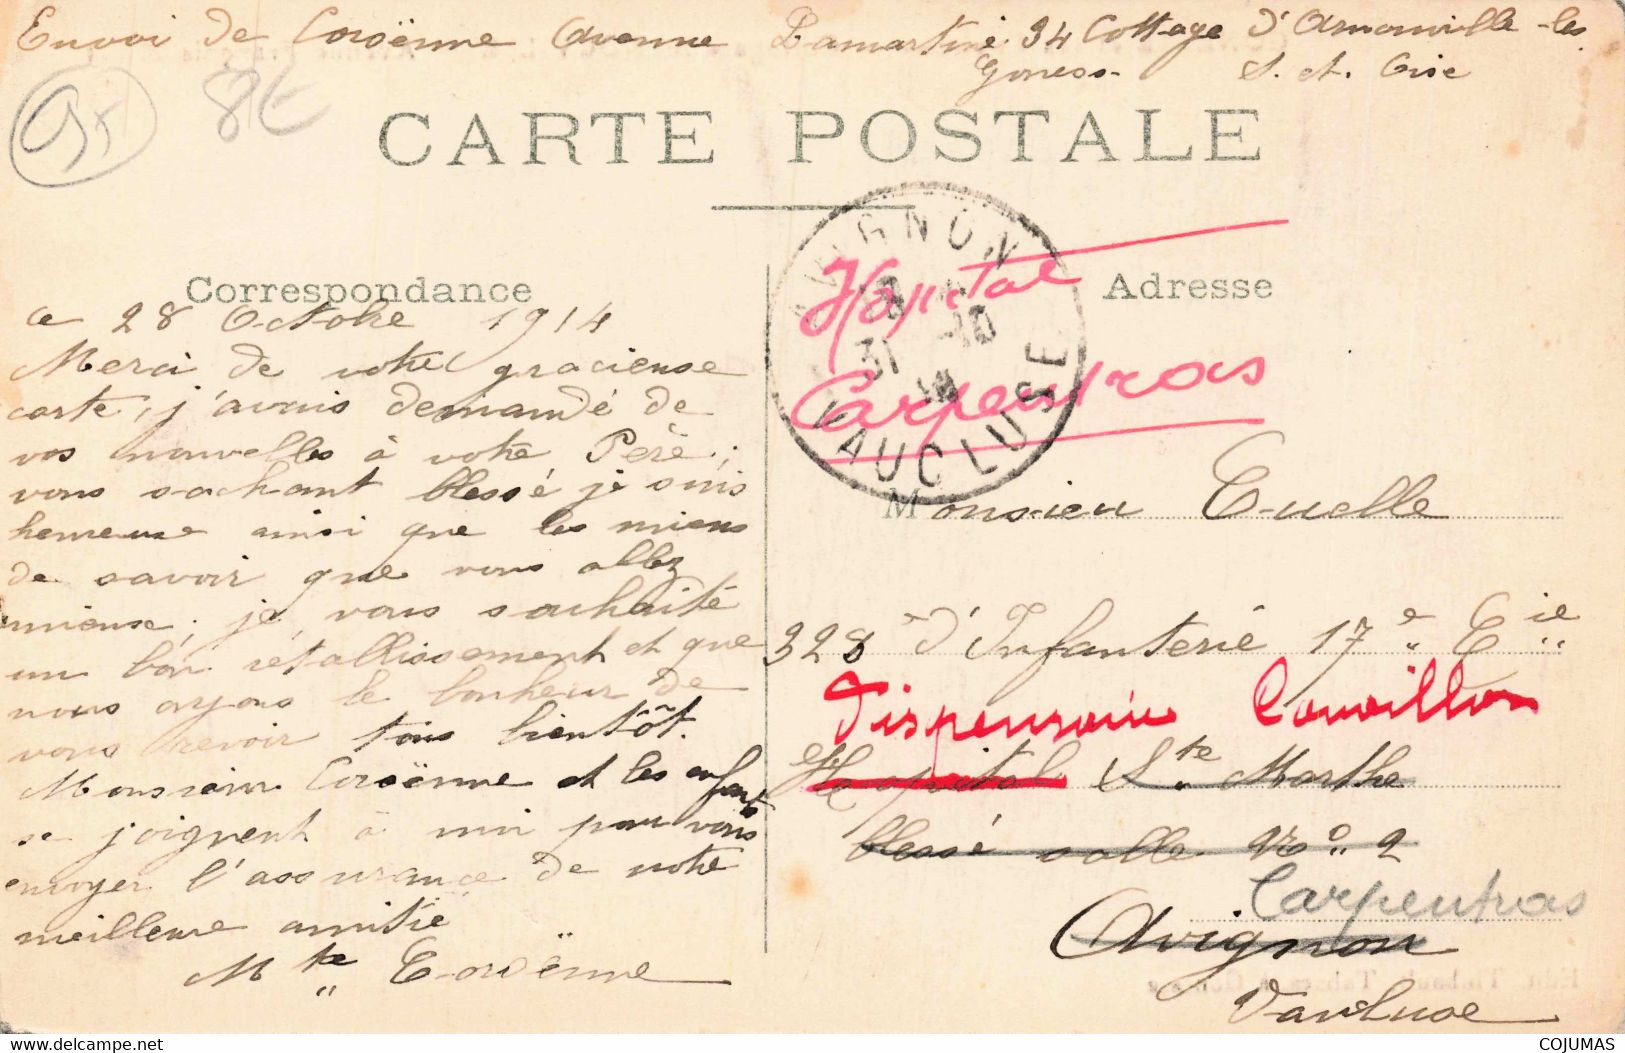 Envoi de Coroënne Avenue Lamartine 34 Cottage d'Arnonville-les
Goness- S. et. Oise
95 8E
CARTE POSTALE
AVIGNON
31 -10
VAUCLUSE
Hopital
Carpentras
Correspondance
Adresse
ce 28 Octobe 1914
Merci de votre gracieuse
carte, j'avais demandé de
vos nouvelles à votre Père;
vous sachant blessé je suis
heureuse ainsi que les miens
de savoir que vous allez
mieux. je vous souhaite
un bon rétablissement et que
nous ayons le bonheur de
vous revoir tous bientôt.
Monsieur Coroënne et les enfants
se joignent à moi pour vous
envoyer l'assurance de votre
meilleure amitié
Mte Coroënne
Monsieur Cuelle
328e d'Infanterie 17e Cie
Dispensaire Couvillon
Hopital Ste Marthe
blessé salle No 2
Carpentras
Avignon
Vaucluse
COJUMAS